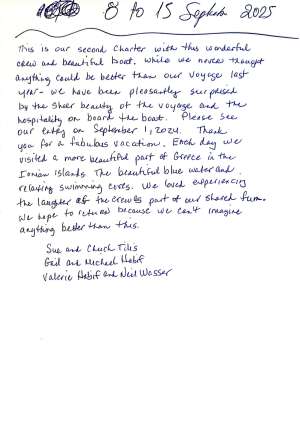 8 to 15 September 2025
This is our second charter with this wonderful
crew and beautiful boat. While we never thought
anything could be better than our voyage last
year - we have been pleasantly surprised
by the sheer beauty of the voyage and the
hospitality on board the boat. Please see
our entry on September 1, 2024. Thank
you for a fabulous vacation. Each day we
visited a more beautiful part of Greece in the
Ionian islands. The beautiful blue water and
relaxing swimming coves. We loved experiencing
the laughter of the crew as part of our shared fun.
We hope to return because we can't imagine
anything better than this.
Sue and Chuck Tilis
Gail and Michael Habif
Valerie Habif and Neil Wasser